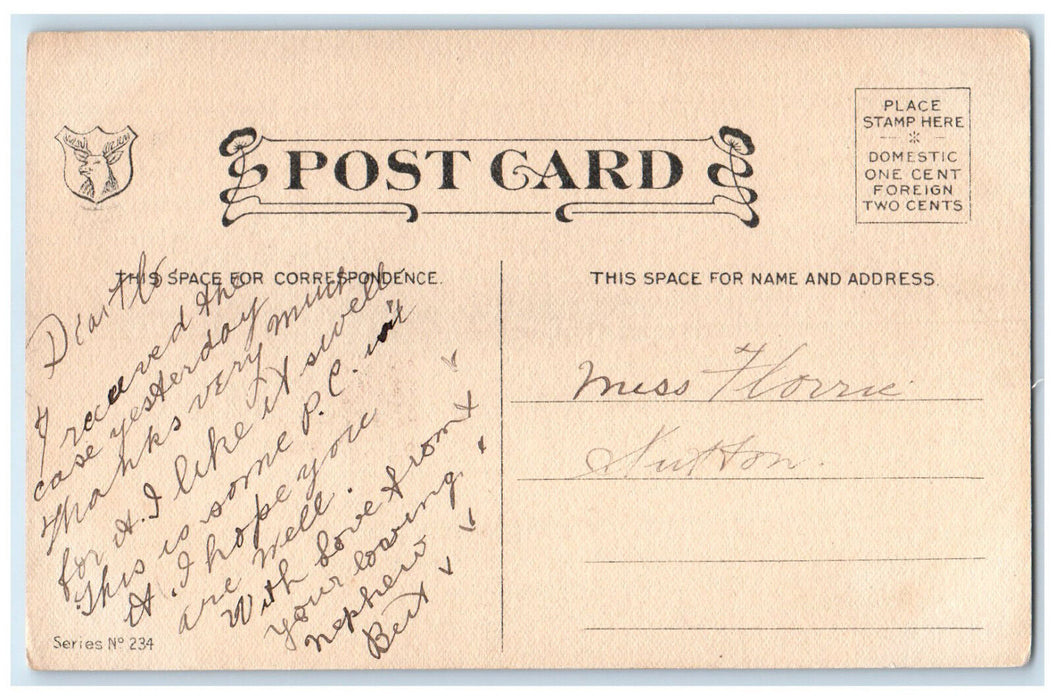 POST CARD
PLACE
STAMP HERE
DOMESTIC
ONE CENT
FOREIGN
TWO CENTS
THIS SPACE FOR CORRESPONDENCE.
Dear Flo.
I received the
case yesterday
Thanks very much
for it. I like it swell
This is some P.C. isn't
it. I hope you
are well.
With Love from
your loving
nephew
Bert
Series No 234
THIS SPACE FOR NAME AND ADDRESS.
Miss Florrie
Sutton.